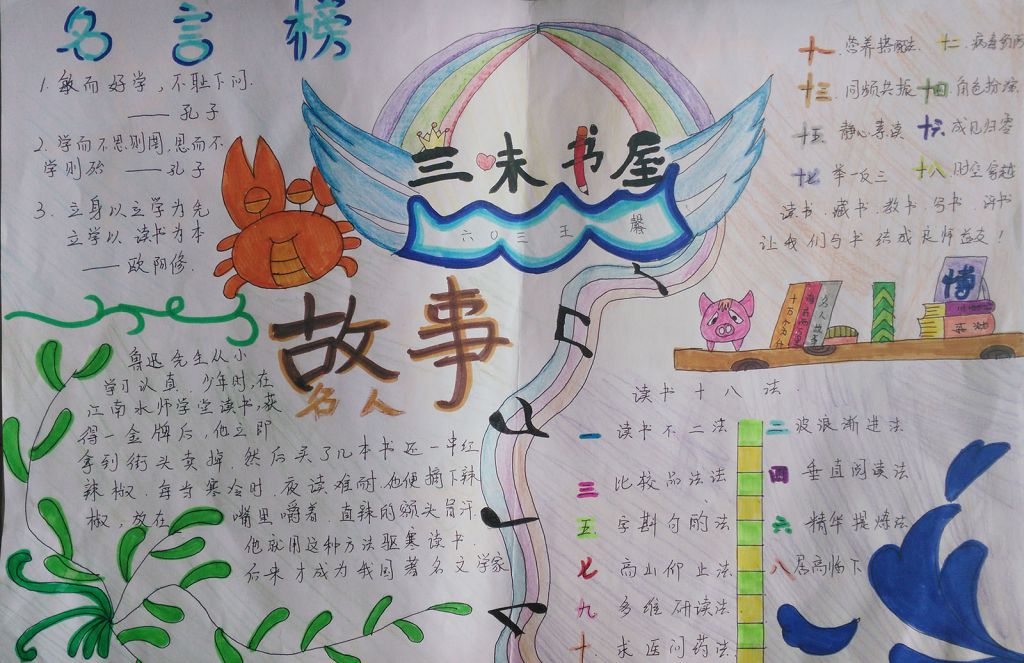 名言榜
1. 敏而好学，不耻下问.
—— 孔子
2. 学而不思则罔,思而不
学则殆 —— 孔子
3. 立身以立学为先
立学以读书为本
—— 欧阳修.
三味书屋
六〇三 王 馨
故事
名人
鲁迅先生从小
学习认真.少年时,在
江南水师学堂读书,获
得一金牌后,他立即
拿到街头卖掉.然后买了几本书还一串红
辣椒.每当寒冷时.夜读难耐.他便摘下辣
椒，放在嘴里嚼着.直辣的额头冒汗.
他就用这种方法驱寒读书.
后来才成为我国著名文学家
读书十八法.
一 读书不二法
二 波浪渐进法
三 比较品法法
四 垂直阅读法
五 字斟句酌法
六 精华提炼法
七 高山仰止法
八 居高临下
九 多维研读法
十. 求医问药法
十一 营养搭配法
十二
十三 同频共振
十四 角色扮演
十五 静心素读
十六 成见归零
十七 举一反三
十八 时空穿越
读书.藏书.教书.写书.评书
让我们与书结成良师益友!
十万个为什
名人故事
博